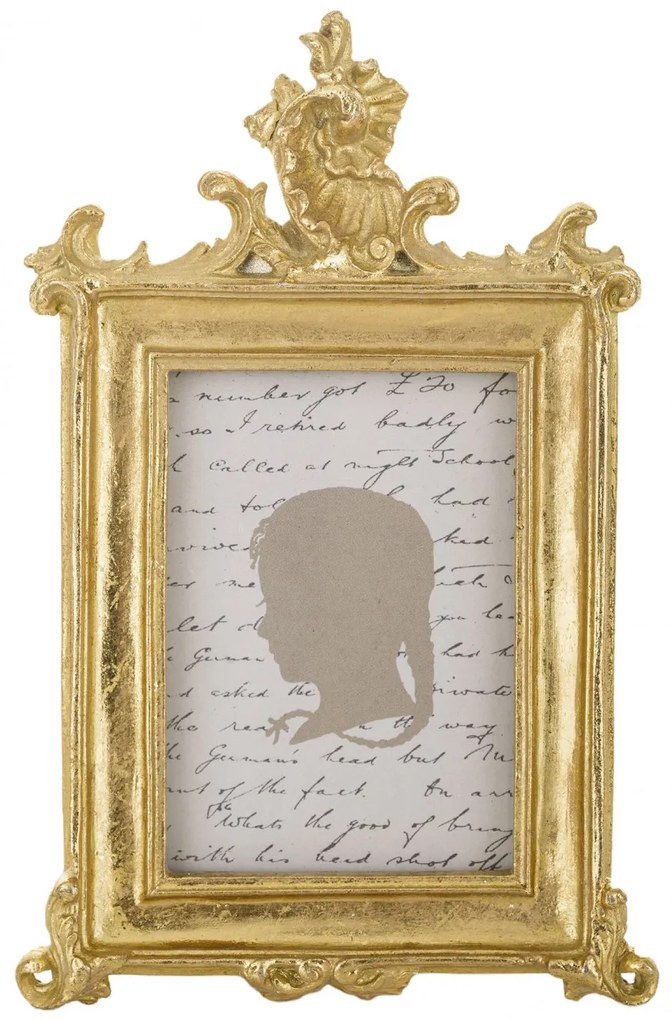 number got £70 fo
so I retired badly w
called at night School,
and tol had
ked
er me
let d you hea
German had h
d asked the rivate
the rea the way.
he German's head but In
nt of the fact. On arr
"Whats the good of bring
with his head shot off